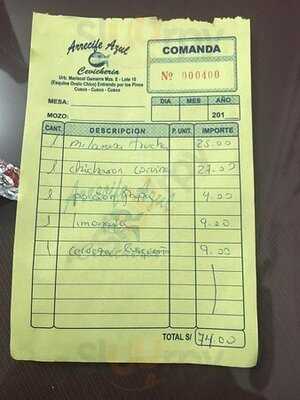 Arrecife Azul
Cevicheria
Urb. Mariscal Gamarra Mza. 8 - Lote 10
(Esquina Ovalo Chico) Entrando por los Pinos
Cusco - Cusco - Cusco
COMANDA
Nº 000400
MESA:
DIA MES AÑO
MOZO: 201
CANT. DESCRIPCION P. UNIT. IMPORTE
1 milanesa trucha 25.00
1 chicharron 27.00
1 porcion 4.00
1 limonada 9.00
1 9.00
TOTAL S/ 74.00